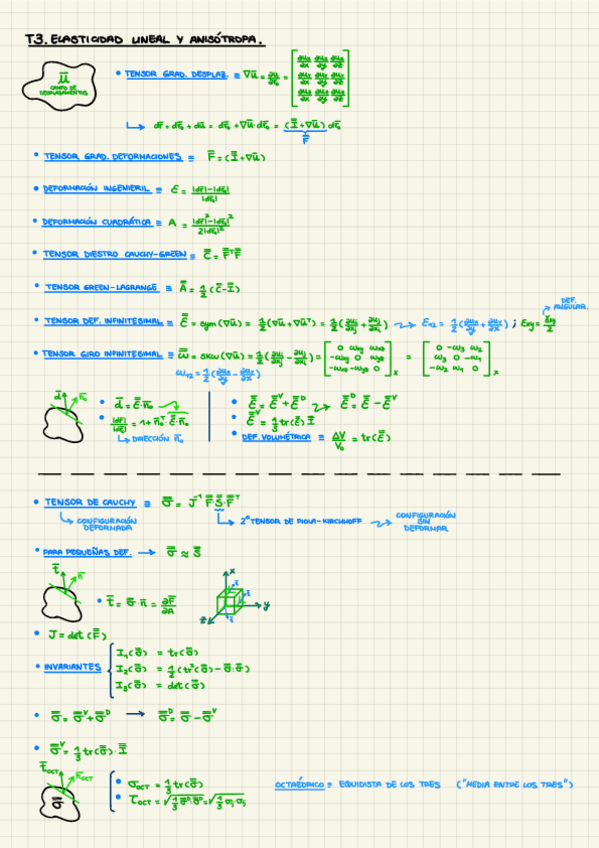 T3. ELASTICIDAD LINEAL Y ANISÓTROPA.
ū
CAMPO DE
DESPLAZAMIENTOS
• TENSOR GRAD. DESPLAZ. ≡ ∇ū = ∂ū/∂r̄₀ = [∂uₓ/∂x ∂uₓ/∂y ∂uₓ/∂z
∂u_y/∂x ∂u_y/∂y ∂u_y/∂z
∂u_z/∂x ∂u_z/∂y ∂u_z/∂z]
↳ dr̄ = dr̄₀ + dū = dr̄₀ + ∇ū·dr̄₀ = (I̿ + ∇ū) dr̄₀
F̿
• TENSOR GRAD. DEFORMACIONES ≡ F̿ = (I̿ + ∇ū)
• DEFORMACIÓN INGENIERIL ≡ ε = |dr̄|-|dr̄₀| / |dr̄₀|
• DEFORMACIÓN CUADRÁTICA ≡ A = |dr̄|²-|dr̄₀|² / 2|dr̄₀|²
• TENSOR DIESTRO CAUCHY-GREEN ≡ C̿ = F̿ᵀF̿
• TENSOR GREEN-LAGRANGE ≡ A̿ = 1/2 (C̿-I̿)
DEF. ANGULAR.
• TENSOR DEF. INFINITESIMAL ≡ ε̿ = sym(∇ū) = 1/2(∇ū+∇ūᵀ) = 1/2(∂uᵢ/∂xⱼ + ∂uⱼ/∂xᵢ) ⇝ ε₁₂ = 1/2(∂uₓ/∂y + ∂u_y/∂x) ; ε_xy = γ_xy/2
• TENSOR GIRO INFINITESIMAL ≡ ω̿ = skw(∇ū) = 1/2(∂uᵢ/∂xⱼ - ∂uⱼ/∂xᵢ) = [0 ω_xy ω_xz
-ω_xy 0 ω_yz
-ω_xz -ω_yz 0]ₓ = [0 -ω₃ ω₂
ω₃ 0 -ω₁
-ω₂ ω₁ 0]ₓ
ω₁₂ = 1/2(∂uₓ/∂y - ∂u_y/∂x)
d̄ n̄₀
• d̄ = ε̿·n̄₀
• |dr̄|/|dr̄₀| = 1+n̄₀ᵀ·ε̿·n̄₀
↳ DIRECCIÓN n̄₀
• ε̿ = ε̿ⱽ + ε̿ᴰ ⇝ ε̿ᴰ = ε̿ - ε̿ⱽ
• ε̿ⱽ = 1/3 tr(ε̿) I̿
• DEF. VOLUMÉTRICA ≡ ΔV/V₀ = tr(ε̿)
• TENSOR DE CAUCHY ≡ σ̿ = J⁻¹ F̿ S̿ F̿ᵀ
↳ CONFIGURACIÓN DEFORMADA
↳ 2º TENSOR DE PIOLA-KIRCHHOFF ⇝ CONFIGURACIÓN SIN DEFORMAR
• PARA PEQUEÑAS DEF. → σ̿ ≈ S̿
t̄ n̄
• t̄ = σ̿·n̄ = ∂F̄/∂A
x
y
z
• J = det(F̿)
• INVARIANTES
I₁(σ̿) = tr(σ̿)
I₂(σ̿) = 1/2(tr²(σ̿) - σ̿:σ̿)
I₃(σ̿) = det(σ̿)
• σ̿ = σ̿ⱽ + σ̿ᴰ → σ̿ᴰ = σ̿ - σ̿ⱽ
• σ̿ⱽ = 1/3 tr(σ̿)·I̿
t̄_OCT n̄_OCT
σ̿
• σ_OCT = 1/3 tr(σ̿)
• τ_OCT = √(1/3 σ̿ᴰ:σ̿ᴰ) = √(1/3 σᵢ·σᵢ)
OCTAÉDRICO ≡ EQUIDISTA DE LOS TRES ("MEDIA ENTRE LOS TRES")